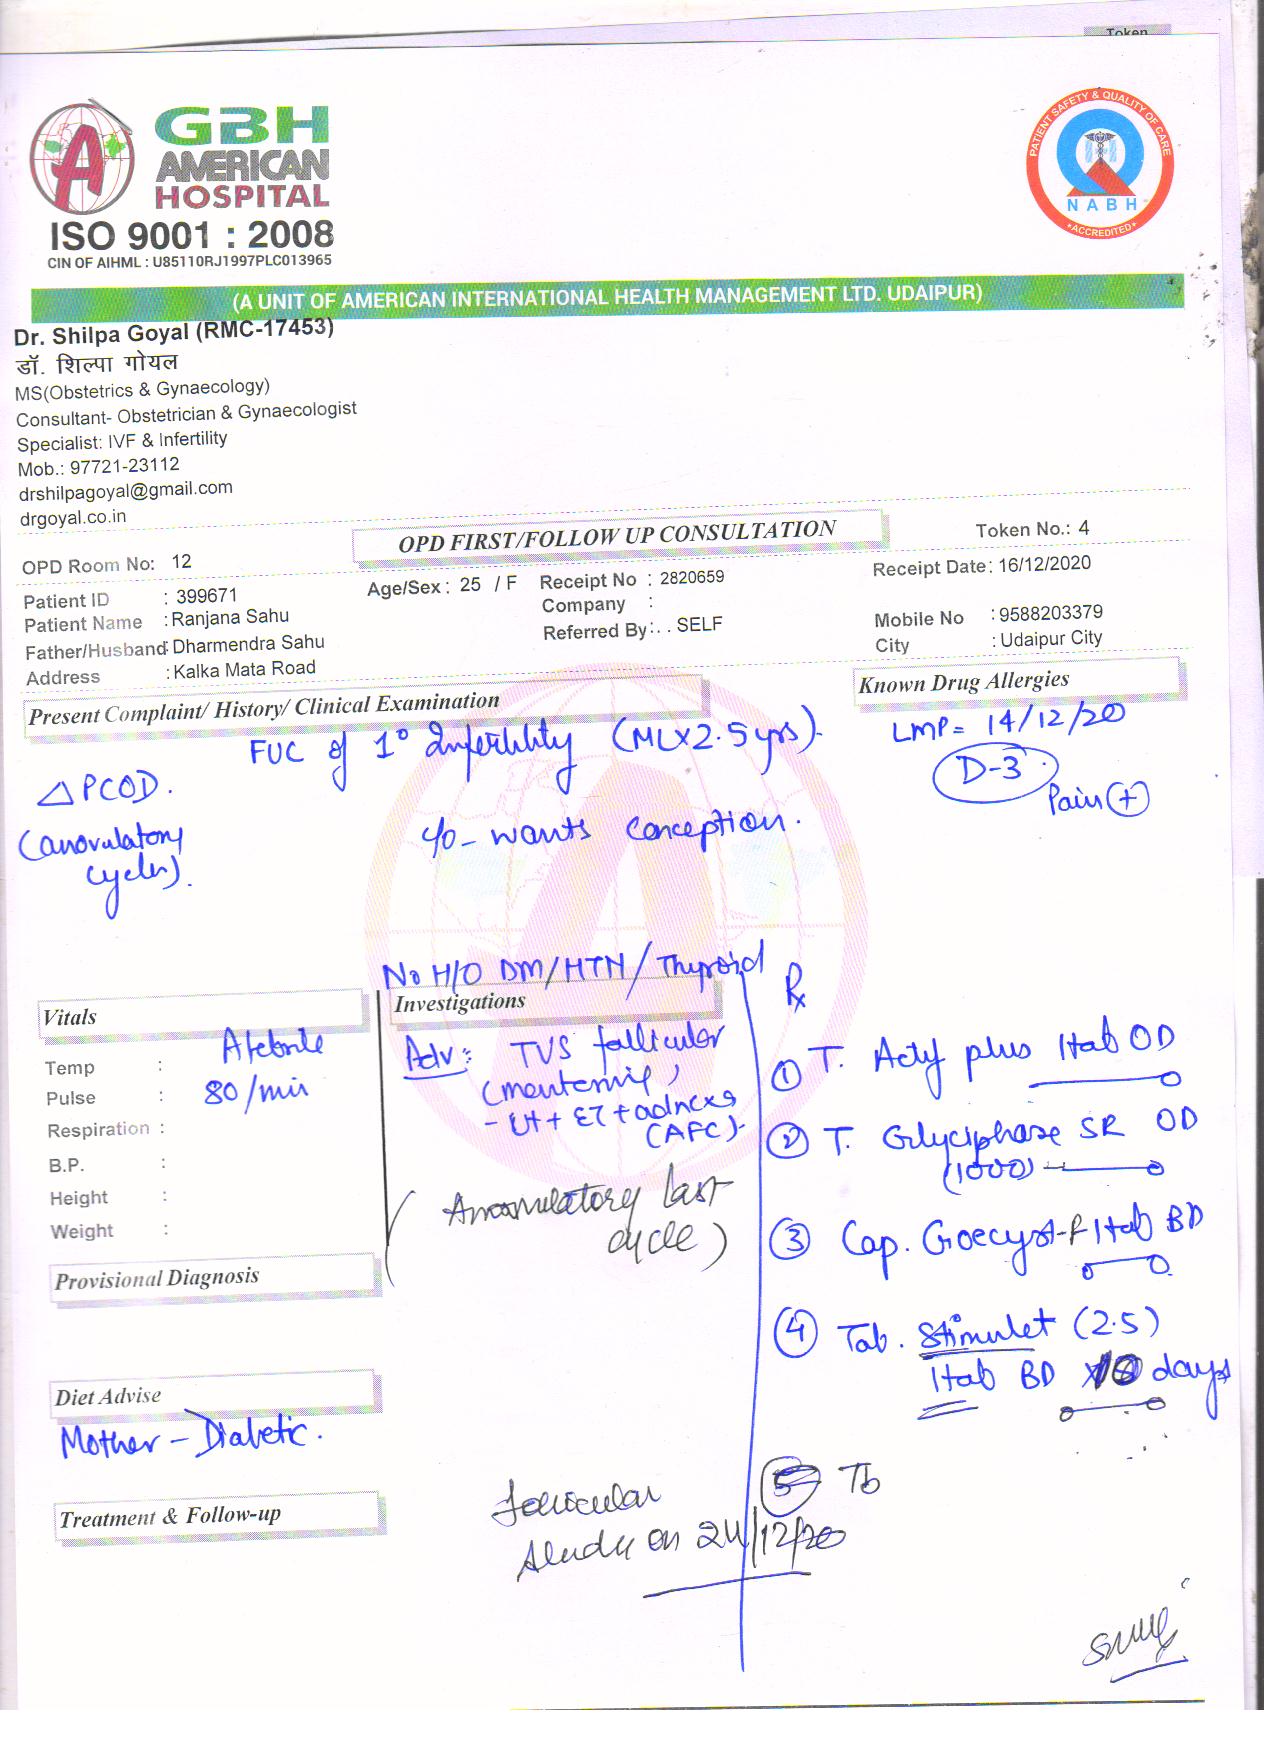 Token
GBH
AMERICAN
HOSPITAL
ISO 9001 : 2008
CIN OF AIHML : U85110RJ1997PLC013965
PATIENT SAFETY & QUALITY OF CARE
NABH
ACCREDITED
(A UNIT OF AMERICAN INTERNATIONAL HEALTH MANAGEMENT LTD. UDAIPUR)
Dr. Shilpa Goyal (RMC-17453)
डॉ. शिल्पा गोयल
MS(Obstetrics & Gynaecology)
Consultant- Obstetrician & Gynaecologist
Specialist: IVF & Infertility
Mob.: 97721-23112
drshilpagoyal@gmail.com
drgoyal.co.in
OPD FIRST/FOLLOW UP CONSULTATION
Token No.: 4
OPD Room No: 12
Receipt Date: 16/12/2020
Patient ID : 399671
Age/Sex : 25 / F
Receipt No : 2820659
Patient Name : Ranjana Sahu
Company :
Mobile No : 9588203379
Father/Husband : Dharmendra Sahu
Referred By : . . SELF
City : Udaipur City
Address : Kalka Mata Road
Present Complaint/ History/ Clinical Examination
Known Drug Allergies
FUC of 1° Infertility (MLX2.5yrs).
LMP= 14/12/20
D-3
Pain (+)
△ PCOD.
(anovulatory
cycles).
c/o - wants conception.
No H/O DM/HTN/Thyroid
Vitals
Temp : Afebrile
Pulse : 80/min
Respiration :
B.P. :
Height :
Weight :
Investigations
Adv: TVS follicular
- Ut + ET + adnexa
(AFC)-
(Anovulatory last
cycle)
Rx
① T. Acty plus 1tab OD
② T. Glyciphase SR OD
(1000)
③ Cap. Goecyst-F 1tab BD
④ Tab. Stimulet (2.5)
1tab BD days
Provisional Diagnosis
Diet Advise
Mother - Diabetic.
Treatment & Follow-up
5 Tb
follicular
study on 24/12/20